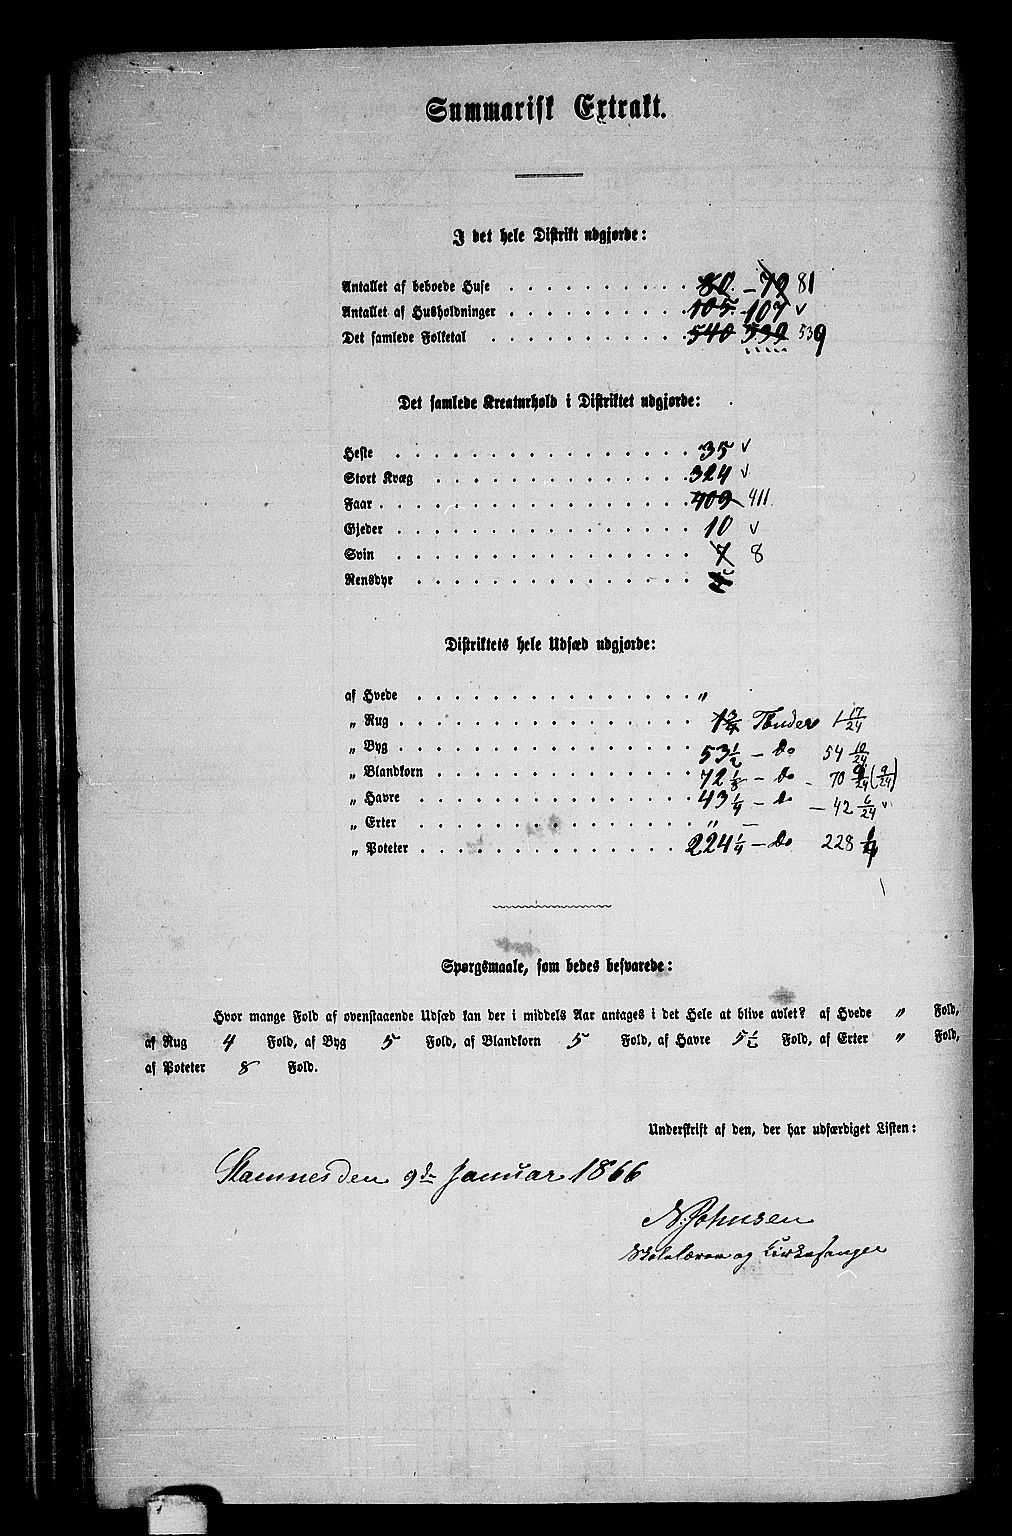 Summarisk Extrakt.
I det hele Distrikt udgjorde:
Antallet af beboede Huse . . . . . . . . . . 80. – 79 81
Antallet af Husholdninger . . . . . . . . . . 105. 107 v
Det samlede Folketal . . . . . . . . . . . 540 539 539
Det samlede Kreaturhold i Distriktet udgjorde:
Heste . . . . . . . . . . . . . . . . 35 v
Stort Kvæg . . . . . . . . . . . . . . 324 v
Faar . . . . . . . . . . . . . . . . . 409 411
Gjeder . . . . . . . . . . . . . . . . 10 v
Svin . . . . . . . . . . . . . . . . 7 8
Rensdyr . . . . . . . . . . . . . . .
Distriktets hele Udsæd udgjorde:
af Hvede . . . . . . . . . . . . . . . "
„ Rug . . . . . . . . . . . . . . . . 1 3/4 Tönder 1 17/24
„ Byg . . . . . . . . . . . . . . . . 53 1/2 – do 54 10/24
„ Blandkorn . . . . . . . . . . . . . . 72 1/8 – do – 70 9/24 (9/24)
„ Havre . . . . . . . . . . . . . . . 43 1/4 – do – 42 6/24 v
„ Erter . . . . . . . . . . . . . . . " –
„ Poteter . . . . . . . . . . . . . . . 224 1/4 – do 228
Spørgsmaale, som bedes besvarede:
Hvor mange Fold af ovenstaaende Udsæd kan der i middels Aar antages i det Hele at blive avlet? af Hvede " Fold,
af Rug 4 Fold, af Byg 5 Fold, af Blandkorn 5 Fold, af Havre 5 1/2 Fold, af Erter " Fold,
af Poteter 8 Fold.
Underskrift af den, der har udfærdiget Listen:
Stamnes den 9de Januar 1866
N. Johnsen
Skolelærer og Kirkesanger